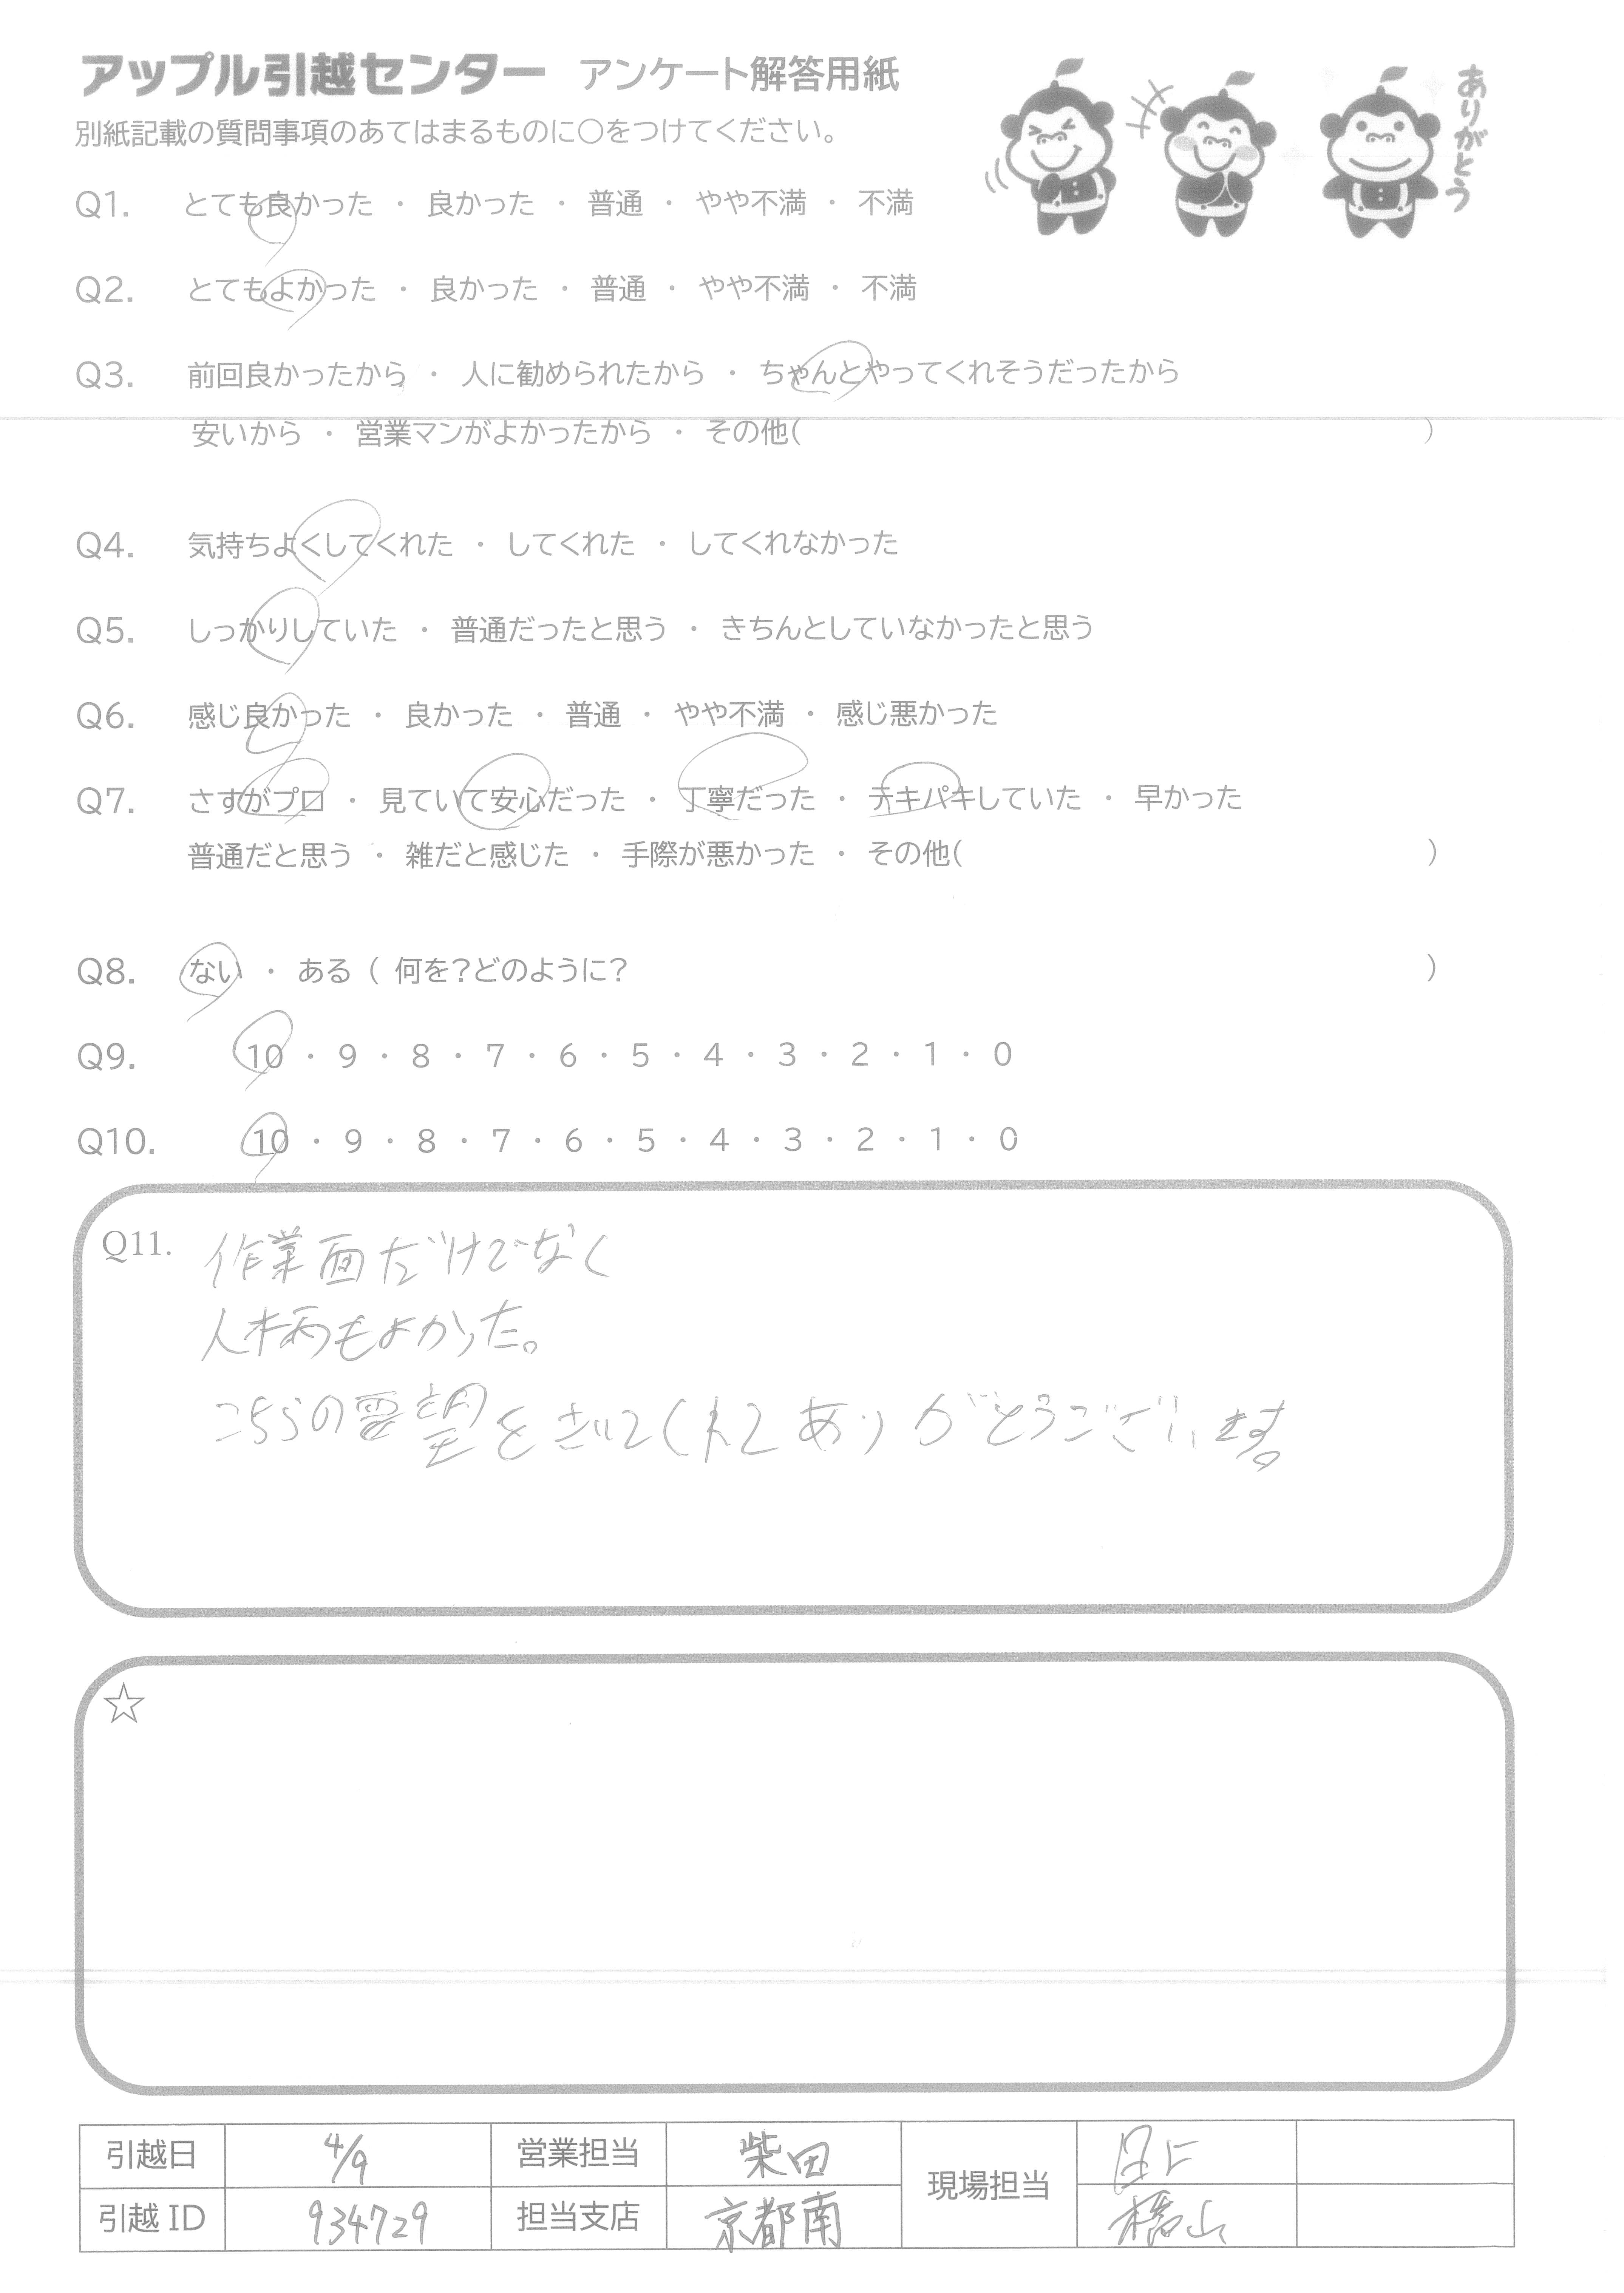 アップル引越センター アンケート解答用紙
ありがとう
別紙記載の質問事項のあてはまるものに○をつけてください。
Q1. とても良かった ・ 良かった ・ 普通 ・ やや不満 ・ 不満
Q2. とてもよかった ・ 良かった ・ 普通 ・ やや不満 ・ 不満
Q3. 前回良かったから ・ 人に勧められたから ・ ちゃんとやってくれそうだったから
安いから ・ 営業マンがよかったから ・ その他( )
Q4. 気持ちよくしてくれた ・ してくれた ・ してくれなかった
Q5. しっかりしていた ・ 普通だったと思う ・ きちんとしていなかったと思う
Q6. 感じ良かった ・ 良かった ・ 普通 ・ やや不満 ・ 感じ悪かった
Q7. さすがプロ ・ 見ていて安心だった ・ 丁寧だった ・ テキパキしていた ・ 早かった
普通だと思う ・ 雑だと感じた ・ 手際が悪かった ・ その他( )
Q8. ない ・ ある ( 何を?どのように? )
Q9. 10 ・ 9 ・ 8 ・ 7 ・ 6 ・ 5 ・ 4 ・ 3 ・ 2 ・ 1 ・ 0
Q10. 10 ・ 9 ・ 8 ・ 7 ・ 6 ・ 5 ・ 4 ・ 3 ・ 2 ・ 1 ・ 0
Q11. 作業面だけでなく
人柄もよかった。
こちらの要望をきいてくれてありがとうございます
☆
引越日 4/9 営業担当 柴田 現場担当
引越 ID 934729 担当支店 京都南 橋山